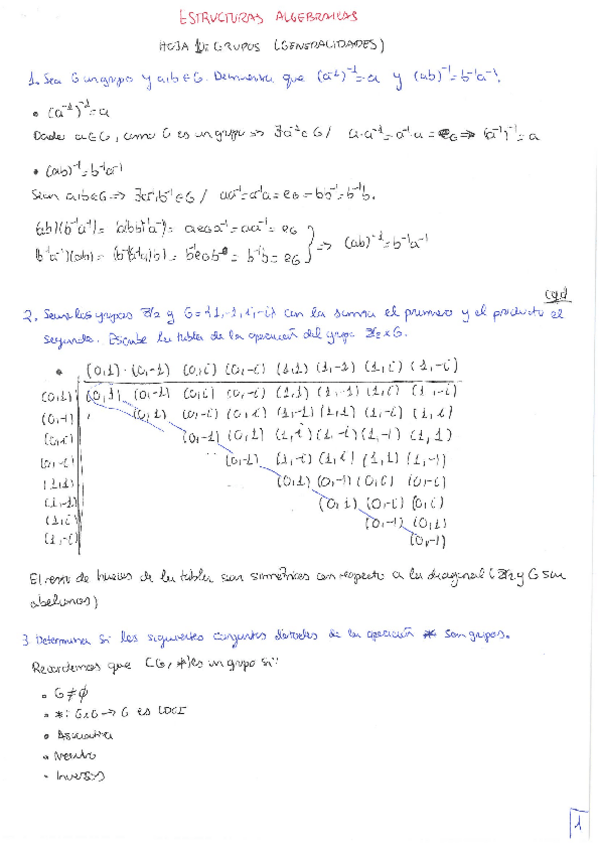 ESTRUCTURAS ALGEBRAICAS
HOJA 1 DE GRUPOS (GENERALIDADES)
1. Sea G un grupo y a,b∈G. Demuestra que (a⁻¹)⁻¹=a y (ab)⁻¹=b⁻¹a⁻¹.
• (a⁻¹)⁻¹=a
Dado a∈G, como G es un grupo => ∃a⁻¹∈G / a·a⁻¹=a⁻¹·a=e_G => (a⁻¹)⁻¹=a
• (ab)⁻¹=b⁻¹a⁻¹
Sean a,b∈G => ∃a⁻¹,b⁻¹∈G / aa⁻¹=a⁻¹a=e_G=bb⁻¹=b⁻¹b.
(ab)(b⁻¹a⁻¹)=a(bb⁻¹)a⁻¹=ae_Ga⁻¹=aa⁻¹=e_G
(b⁻¹a⁻¹)(ab)=b⁻¹(a⁻¹a)b=b⁻¹e_Gb=b⁻¹b=e_G } => (ab)⁻¹=b⁻¹a⁻¹
cqd
2. Sean los grupos ℤ/2 y G={1,-1,i,-i} con la suma el primero y el producto el
segundo. Escribe la tabla de la operación del grupo ℤ/2×G.
• (0,1) (0,-1) (0,i) (0,-i) (1,1) (1,-1) (1,i) (1,-i)
(0,1) (0,1) (0,-1) (0,i) (0,-i) (1,1) (1,-1) (1,i) (1,-i)
(0,-1) (0,1) (0,-i) (0,i) (1,-1) (1,1) (1,-i) (1,i)
(0,i) (0,-1) (0,1) (1,i) (1,-i) (1,-1) (1,1)
(0,-i) (0,-1) (1,-i) (1,i) (1,1) (1,-1)
(1,1) (0,1) (0,-1) (0,i) (0,-i)
(1,-1) (0,1) (0,-i) (0,i)
(1,i) (0,-1) (0,1)
(1,-i) (0,-1)
El resto de huecos de la tabla son simétricos con respecto a la diagonal (ℤ/2 y G son
abelianos)
3. Determina si los siguientes conjuntos dotados de la operación * son grupos.
Recordemos que (G,*) es un grupo si:
• G≠∅
• *: G×G→G es
• Asociativa
• Neutro
• Inversos
1